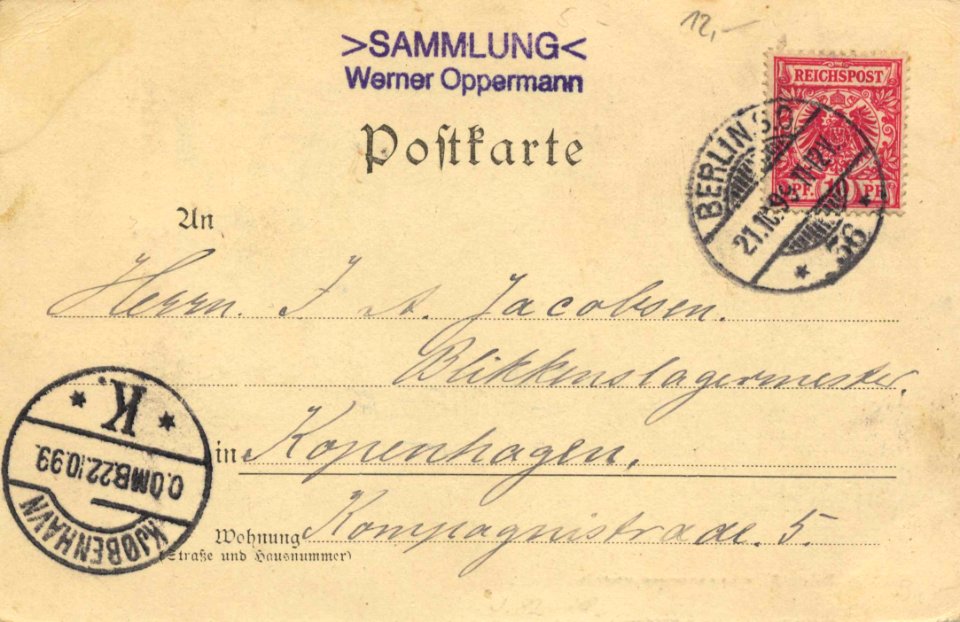 12,-
>SAMMLUNG<
Werner Oppermann
REICHSPOST
10 PF
BERLIN S.
21.10.99. 11-12
36
Postkarte
An
Herrn. J A. Jacobsen.
Blikkenslagermester.
in Kopenhagen,
Wohnung Kompagnistrade. 5.
(Straße und Hausnummer)
K.
O.OMB.22.10.99.
KJØBENHAVN